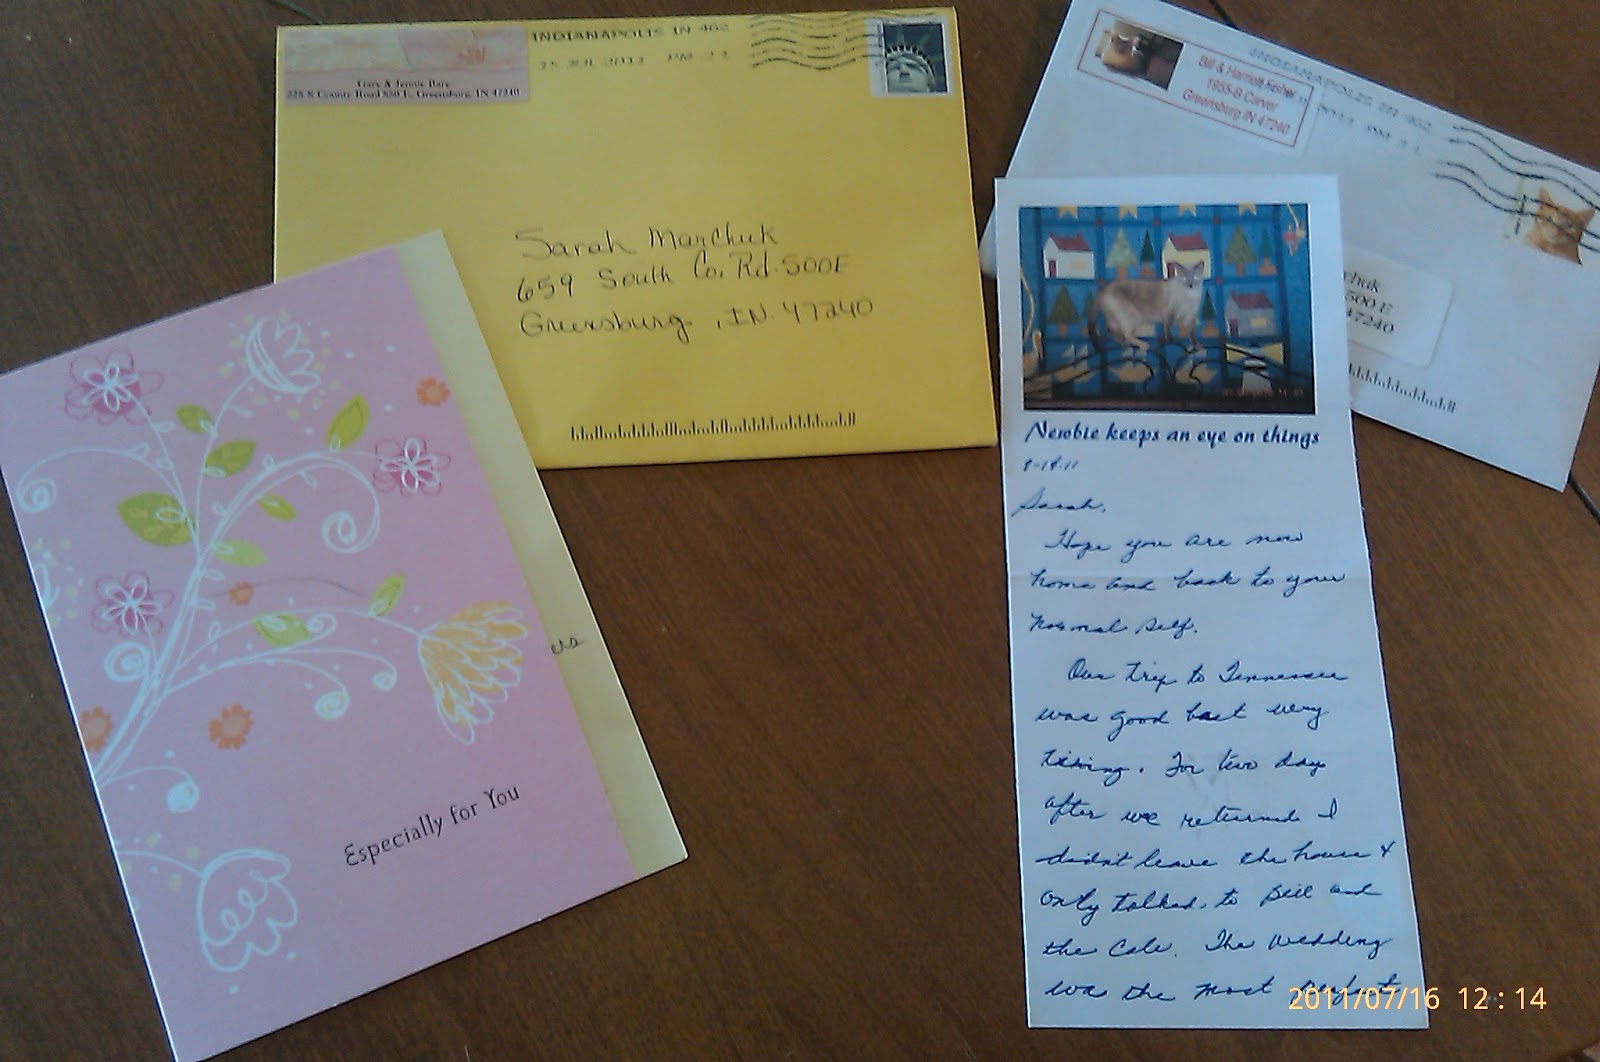 Gary & Jennie Bare
225 S County Road 850 E. Greensburg, IN 47240
INDIANAPOLIS IN 462
15 JUL 2011 PM
Sarah Marchuk
659 South Co. Rd. 500E
Greensburg, IN. 47240
Bill & Harriett Fisher
1955-B Carver
Greensburg IN 47240
INDIANAPOLIS IN 462
2011 PM
chuk
500 E
47240
Especially for You
ers
Newbie keeps an eye on things
Sarah,
Hope you are now
home and back to your
normal self.
Our trip to Tennessee
was good but very
tiring. For two day
after we returned I
didn't leave the house &
only talked to Bill and
the Cats. The Wedding
was the most perfect
2011/07/16 12:14